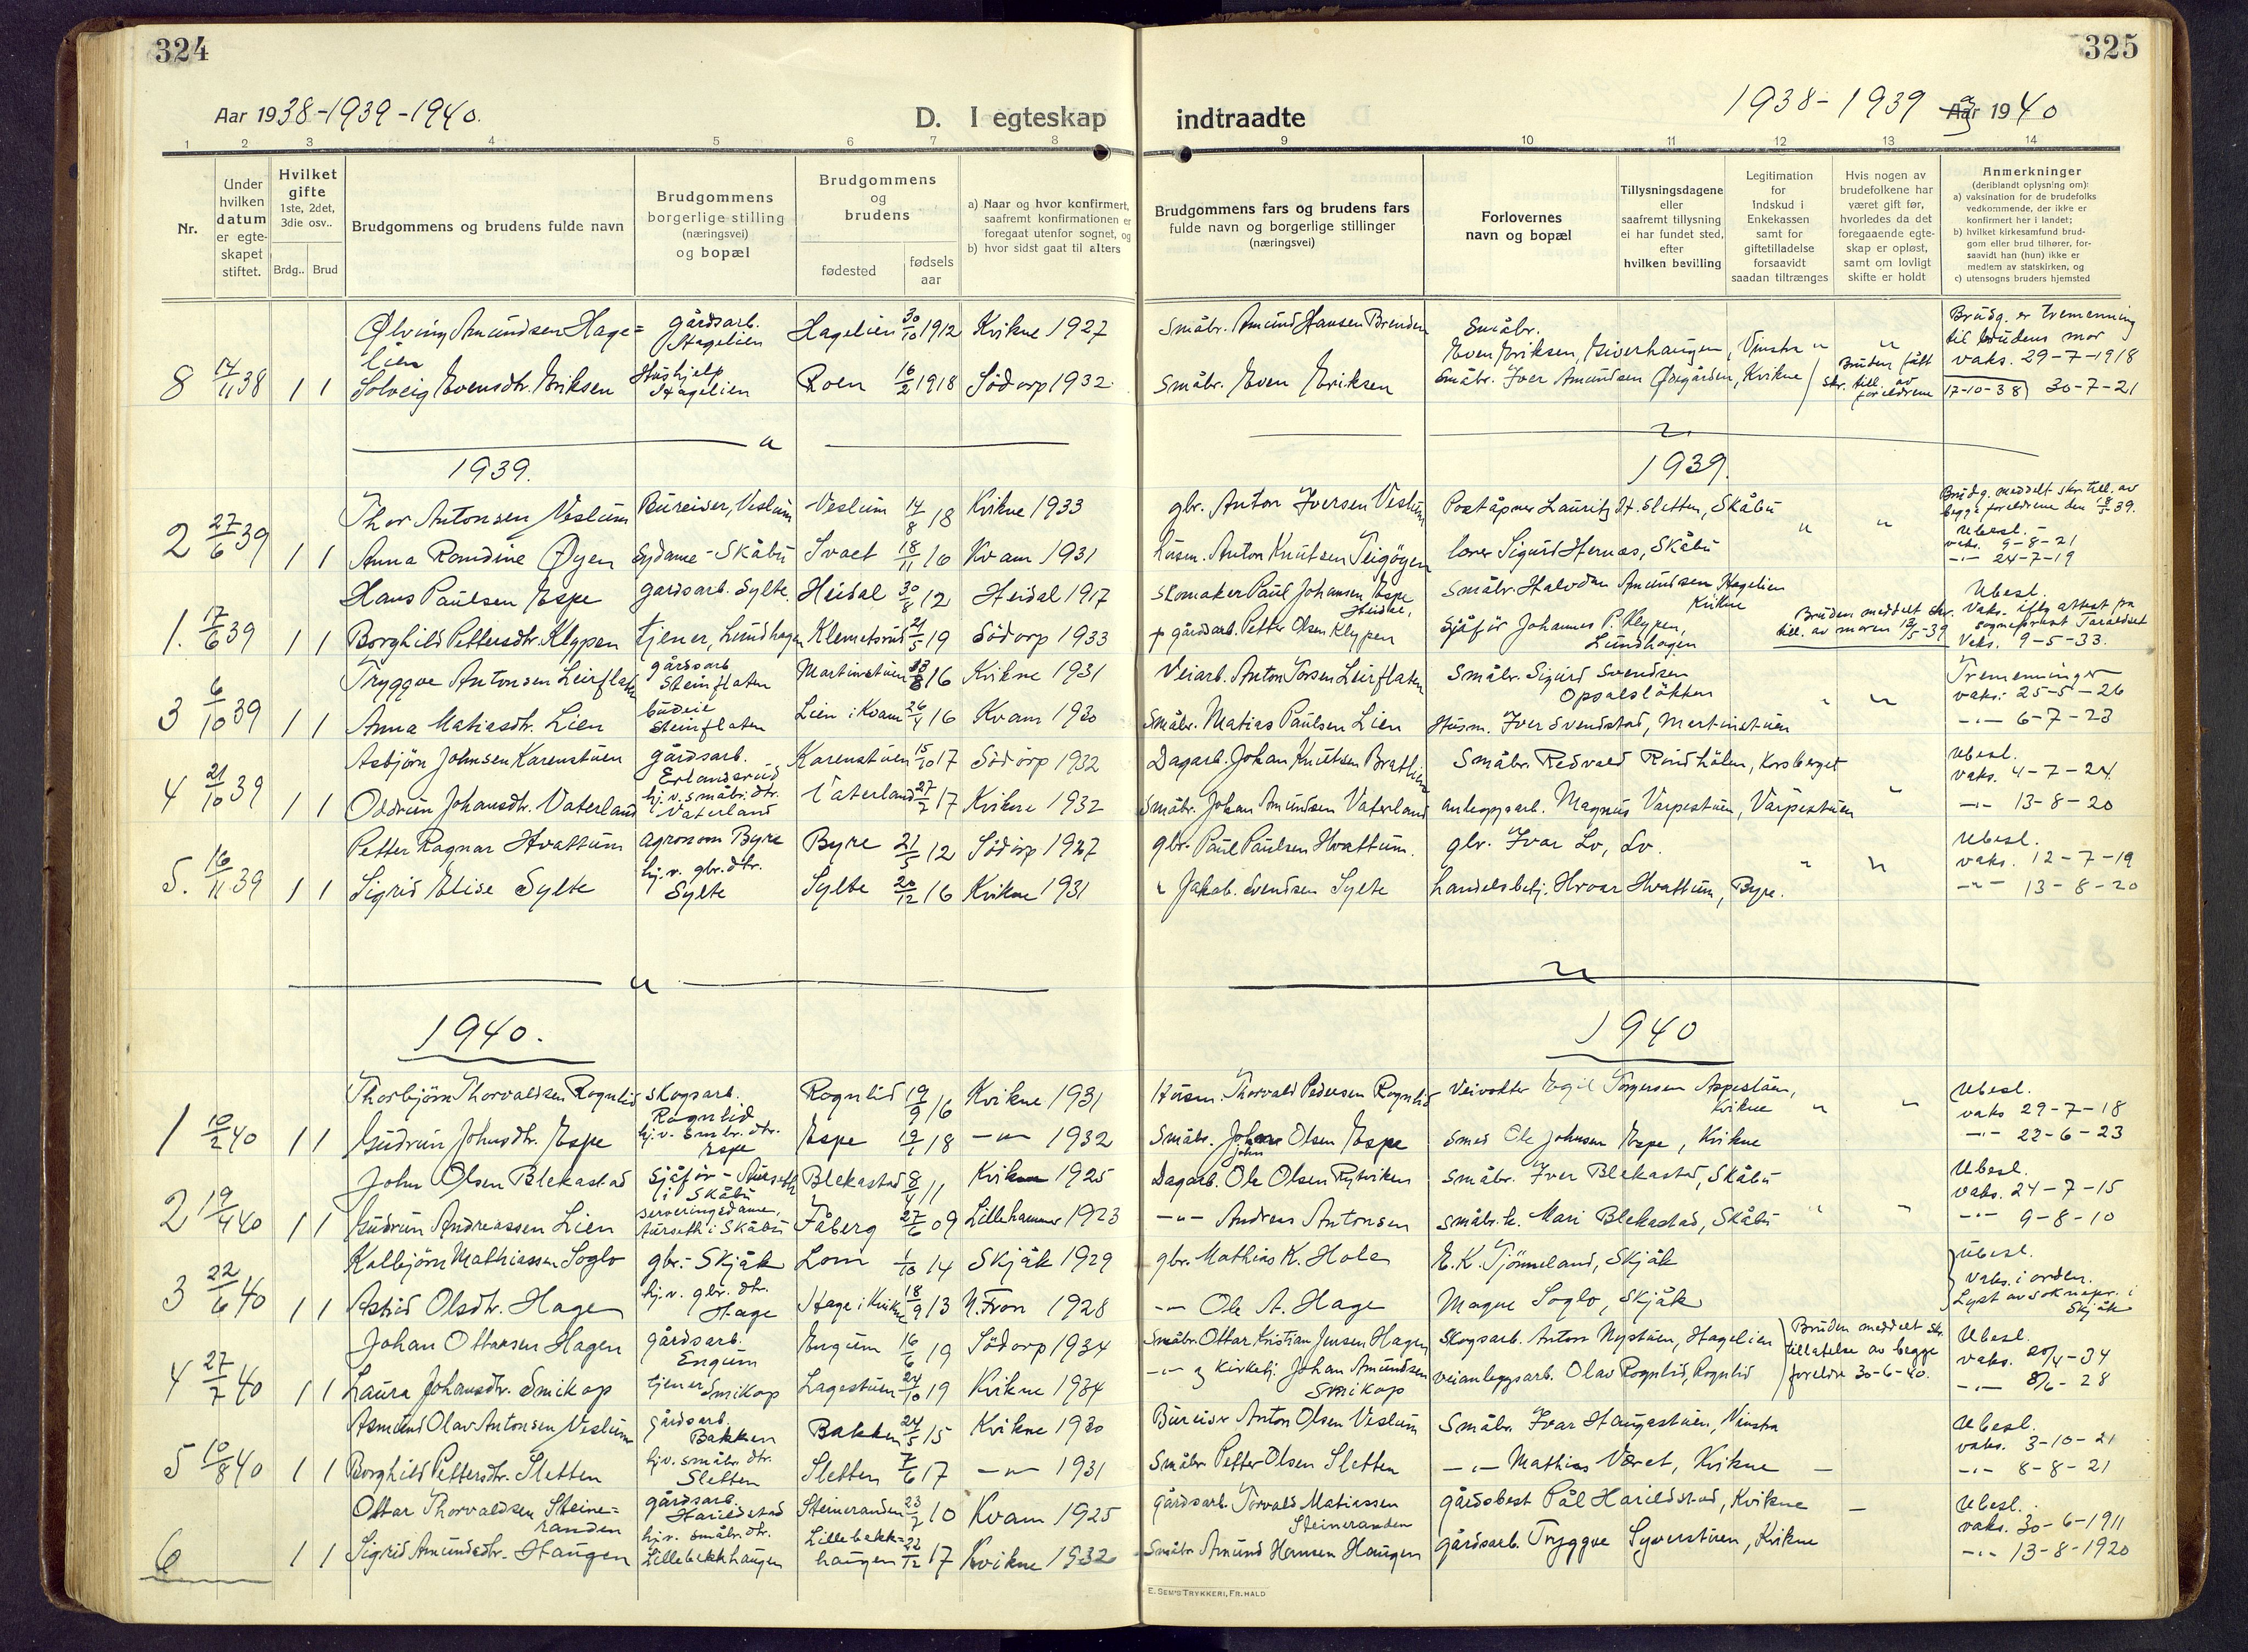 324
Aar 1938-1939-1940.
D. I egteskap
1 2 3 4 5 6 7 8
Nr.
Under hvilken datum er egteskapet stiftet.
Hvilket gifte
1ste, 2det, 3die osv..
Brdg.. Brud
Brudgommens og brudens fulde navn
Brudgommens borgerlige stilling (næringsvei) og bopæl
Brudgommens og brudens
fødested
fødsels aar
a) Naar og hvor konfirmert, saafremt konfirmationen er foregaat utenfor sognet, og
b) hvor sidst gaat til alters
Ølving Amundsen Hage= gårdsarb. Hagelien 30/10 1912 Kvikne 1927
lien Hagelien
8 14/11 38 1 1 Solveig Evensdtr. Eriksen Hushjelp Hagelien Roen 16/2 1918 Södorp 1932
1939.
Thor Antonsen Veslum Bureiser, Veslum Veslum 14/8 18 Kvikne 1933
2 27/6 39 1 1 Anna Romdine Øyen Sydame - Skåbu Svaet 18/11 16 Kvam 1931
Hans Paulsen Espe gardsarb. Sylte. Heidal 30/8 12 Heidal 1917
1. 17/6 39 1 1 Borghild Pettersdtr. Klypen tjener, Lundhagen Klemetsrud 21/5 19 Södorp 1933
Tryggve Antonsen Leirflaten gårdsarb Steinflaten Martinstuen 8 16 Kvikne 1931
3 6/10 39 1 1 Anna Matiasdtr. Lien budeie Steinflaten Lien i Kvam 26/4 16 Kvam 1930
Asbjörn Johnsen Karenstuen gårdsarb. Erlandsrud Karenstuen 15/10 17 Södorp 1932
4 21/10 39 1 1 Oddrun Johansdtr. Vaterland hj. v. småbr. dtr. Vaterland Vaterland 27/7 17 Kvikne 1932
Petter Ragnar Hvattum agronom Byre Byre 21/5 12 Södorp 1927
5. 16/11 39 1 1 Sigrid Elise Sylte hj. v. gbr. dtr. Sylte Sylte 20/12 16 Kvikne 1931
1940.
Thorbjörn Thorvaldsen Rognlid skogsarb. Rognlid Rognlid 19/9 16 Kvikne 1931
1 10/2 40 1 1 Gudrun Johnsdtr. Espe hj. v. smbr. dtr. Espe Espe 18 -"- 1932
John Olsen Blekastad Sjåför - i Skåbu Blekastad 8/4 11 Kvikne 1925
2 19/4 40 1 1 Gudrun Andreassen Lien serveringsdame, i Skåbu Fåberg 27/6 09 Lillehammer 1923
Kolbjörn Mathiassen Soglo gbr. - Skjåk Lom 1/10 14 Skjåk 1929
3 22/6 40 1 1 Astrid Olsdtr. Hage hj. v. gbr. dtr. Hage Hage i Kvikne 18/9 13 N. Fron 1928
Johan Ottarsen Hagen gårdsarb. Engum Engum 16/6 19 Södorp 1934
4 27/7 40 1 1 Laura Johansdtr. Smikop tjener Smikop Lagestuen 24/10 19 Kvikne 1934
Asmund Olav Antonsen Veslum gårdsarb. Bakken Bakken 24/5 15 Kvikne 1930
5 10/8 40 1 1 Borghild Pettersdtr. Sletten hj. v. småbr. dtr. Sletten Sletten 7/6 17 -"- 1931
Ottar Thorvaldsen Steine= gårdsarb. Harildstad Steineranden 23/7 10 Kvam 1925
randen
6 1 1 Sigrid Amundsdtr. Haugen hj. v. småbr. dtr. Lillebekkhaugen Lillebekk= haugen 22/12 17 Kvikne 1932
325
indtraadte
1938-1939 og 1940
9 10 11 12 13 14
Brudgommens fars og brudens fars fulde navn og borgerlige stillinger (næringsvei)
Forlovernes navn og bopæl
Tillysningsdagene eller saafremt tillysning ei har fundet sted, efter hvilken bevilling
Legitimation for Indskud i Enkekassen samt for giftetilladelse forsaavidt saadan tiltrænges
Hvis nogen av brudefolkene har været gift før, hvorledes da det foregaaende egteskap er opløst, samt om lovligt skifte er holdt
Anmerkninger
(deriblandt oplysning om):
a) vaksination for de brudefolks vedkommende, der ikke er konfirmert her i landet;
b) hvilket kirkesamfund brudgom eller brud tilhører, forsaavidt han (hun) ikke er medlem av statskirken, og
c) utensogns bruders hjemsted
Småbr. Amund Hansen Brenden Småbr. Even Eriksen, Giverhaugen, Vinstra " " Brudg. er tremenning til brudens mor vaks. 29-7-1918
Småbr. Even Eriksen Småbr. Iver Amundsen Øvgården, Kvikne Bruden fått skr. till. av foreldrene 17-10-38) 30-7-21
1939.
gbr. Anton Iversen Veslum Poståpner Lauritz H. Sletten, Skåbu " " Brudg. meddelt skr. till. av begge foreldrene den 39.
husm. Anton Knutsen Teigöyen lærer Sigurd Hernæs, Skåbu Ubesl. vaks. 9-8-21
-"- 24-7-19
skomaker Paul Johansen Espe Heidal, Småbr. Halvdan Amundsen Hagelien Kvikne Ubesl.
gårdsarb. Petter Olsen Klypen Sjåför Johannes P. Klypen, Lundhagen Bruden meddelt skr. till. av moren 39 Vaks. iflg attest fra sogneprest
Vaks. 9-5-33.
Veiarb. Anton Torsen Leirflaten Småbr. Sigurd Svendsen Opsalslökken " " Tremenninger vaks. 25-5-26
Småbr. Matias Paulsen Lien Husm. Iver Svendstad, Martinstuen -"- 6-7-23
Dagarb. Johan Knutsen Bratlien Småbr. Redvald Rindhölen, Korsberget Ubesl. vaks. 4-7-24
Småbr. Johan Amundsen Vaterland anleggsarb. Magnus Varpestuen, Varpestuen " -"- 13-8-20
gbr. Paul Paulsen Hvattum. gbr. Ivar Lo, Lo. " " Ubesl. vaks. 12-7-19
" Jakob Svendsen Sylte handelsbetj. Hroar Hvattum, Byre. -"- 13-8-20
1940
Husm. Thorvald Pedersen Rognlid Veivokter Egil Torgersen Aspestuen, Kvikne " " Ubesl. vaks 29-7-18
Småbr. John Olsen Espe Smed Ole Johnsen Espe, Kvikne -"- 22-6-23
Dagarb. Ole Olsen Rytviken Småbr. Iver Blekastad, Skåbu Ubesl. vaks. 24-7-15
-"- Andreas Antonsen småbr. k. Mari Blekastad, Skåbu " " -"- 9-8-10
gbr. Mathias K. Hole E. K. Tjönneland, Skjåk Ubesl. Vaks. i orden.
-"- Ole A. Hage Magne Soglo, Skjåk Lyst av soknepr. i Skjåk
Småbr. Ottar Kristian Jensen Hagen Skogsarb. Anton Nystuen, Hagelien Bruden meddelt skr. tillatelse av begge foreldre 30-6-40. Ubesl. vaks. 20/4-34
-"- og kirketj. Johan Amundsen Smikop veianleggsarb. Olav Rognlid, Rognlid -"- 8/6-28
Bureiser Anton Olsen Veslum Småbr. Ivar Haugastuen, Vinstra Ubesl. vaks. 3-10-21
Småbr. Petter Olsen Sletten -"- Mathias Været, Kvikne -"- 8-8-21
gårdsarb. Torvald Matiassen Steineranden gårdsbest Pål Harildstad, Kvikne Ubesl. vaks. 30-6-1911
Småbr Amund Hansen Haugen gårdsarb. Tryggve Syverstuen, Kvikne -"- 13-8-1920
E. SEM'S TRYKKERI, FR.HALD